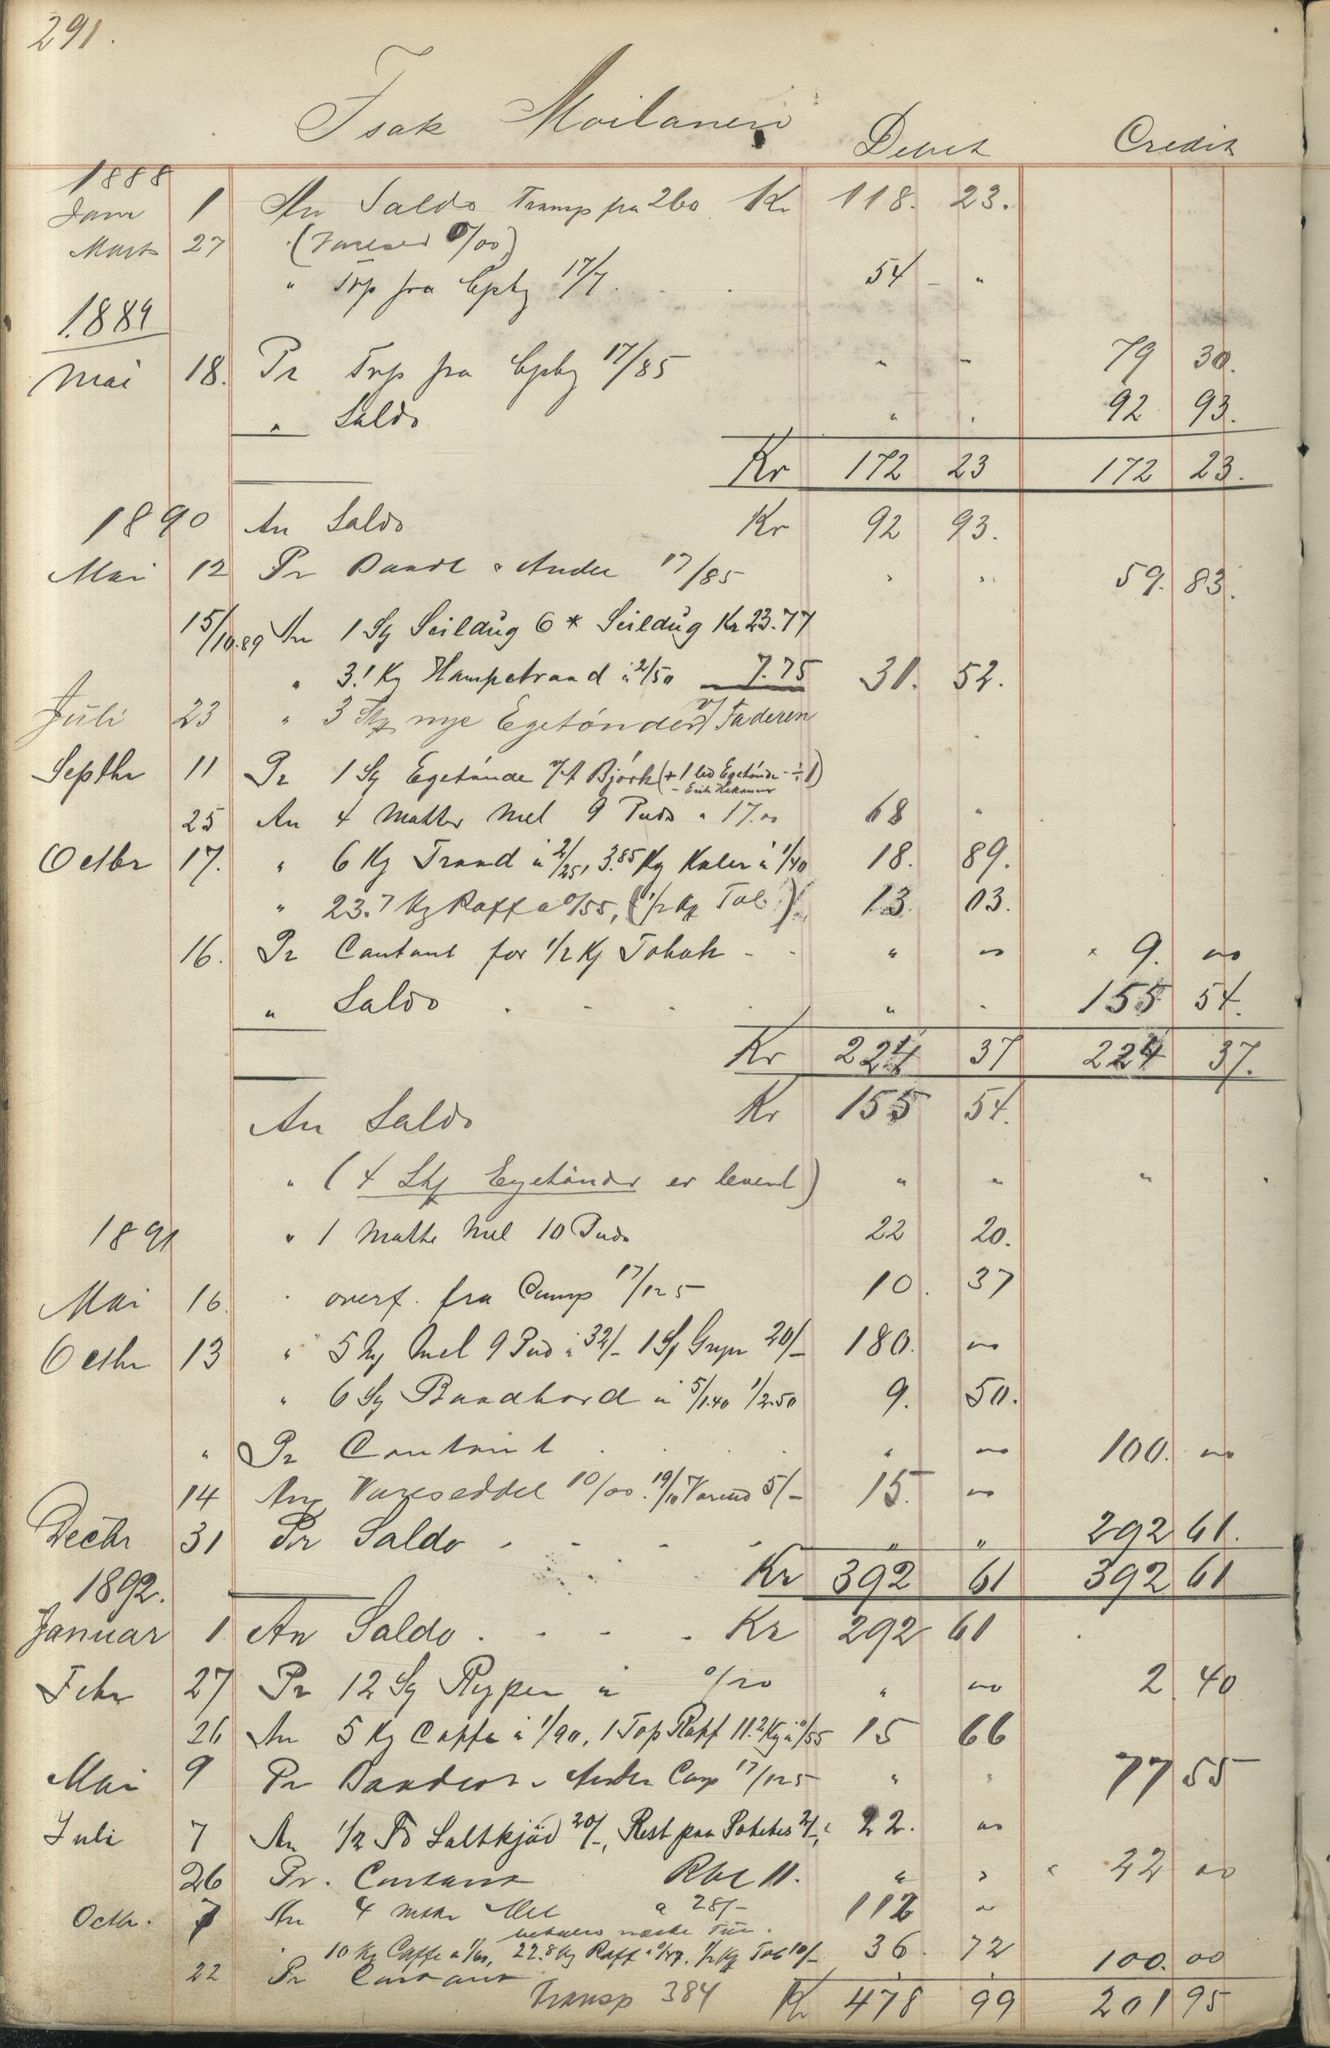 291.
Isak Moilanen
Debet Credit
1888
Janr 1 An Saldo Transp fra 260 Kr 118. 23.
Marts 27 (Varesed 0/00)
" Trp fra Cpbg 17/7 . . 54 - "
1889
Mai 18. Pr Trp fra Cpbg 17/85 " - 79 30.
" Saldo " . 92 93.
Kr 172 23 172 23.
1890 An Saldo Kr 92 93.
Mai 12 Pr 17/85 " " 59. 83.
15/10.89 An 1 Sg Seildug 6 * Seildug Kr 23.77
" 3.1 Kg Hampetraad à 2/50 7.75 31. 52.
Juli 23 " 3 Stk nye Egetönder v/ Faderen
Septbr 11 Pr 1 Sg Egetönde Björk (+ 1 Egetönde ÷ 1)
- Erik
25 An 4 Matter Mel 9 Puds à 17.00 68 "
Octbr 17. " 6 Kg Traad à 2/25, 3.85 Kg Kabler à 1/40 18. 89.
" 23.7 Kg Raff à 0/55, (1/2 Kg Tob) 13. 03.
16. Pr Contant for 1/2 Kg Tobak - - " " × 9. 00
" Saldo . - - . " . 155 54.
Kr 224 37 224 37.
An Saldo Kr 155 54.
" (4 Stk Egetönder er levert) " " " .
1891 " 1 Matte Mel 10 Puds 22 20.
Mai 16. " overf. fra Camp 17/125 10. 37
Octbr 13 " 5 Mel 9 Pud à 32/- 1 Sg Gryn 20/- 180. 00
" 6 Sg Baadbord à 5/1.40 1/2.50 9. 50.
" Pr Contant . . . " 00 100. 00
14 An Vareseddel 10/00. 19/10 Varesed 5/- 15. 00
Decbr 31 Pr Saldo - - - - " " 292 61.
Kr 392 61 392 61
1892.
Januar 1 An Saldo . - - . Kr 292 61 .
Febr 27 Pr 12 Sg Ryper à 0/20 " 00 2. 40
26 An 5 Kg Caffe à 1/90, 1 Top Raff 11.2 Kg à 0/55 15 66
Mai 9 Pr Camp 17/125 " " 77 55
Juli 7 An 1/2 Saltkjöd 20/-, Rest paa Potetes 2/-, 22. 00
26 Pr. Contant 11. " " × 22 00
Octbr. 7 An 4 Mtr Mel à 28/- 112 "
betales næste Tur.
" 10 Kg Caffe à 1/60, 22.8 Kg Raff, 1/2 Kg Tob 10/- 36. 72
22 Pr Contant . . 100. 00
Transp 384 Kr 478 99 201 95